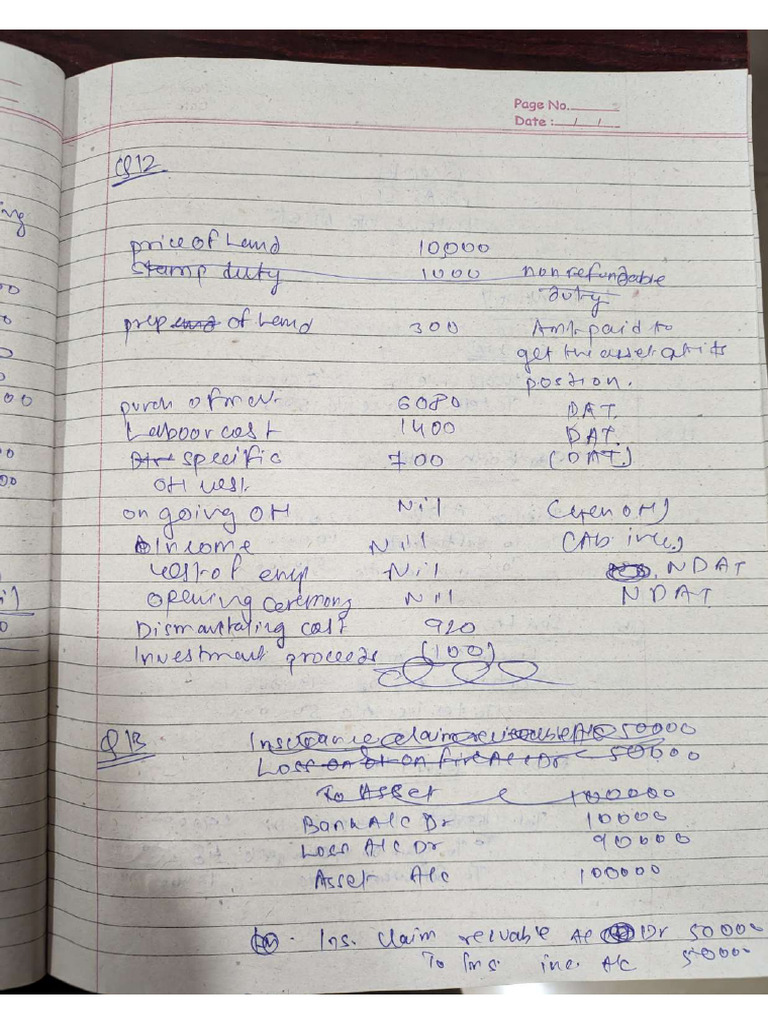 Page No.
Date : / /
Q12
price of Land 10,000
Stamp duty 1000 non refundable
duty
prep of Land 300 Amt paid to
get the asset at its
position.
purch of mat. 6080 DAT.
Labour cost 1400 DAT.
specific 700 (DAT.)
OH
on going OH Nil (Gen OH)
Income Nil
cost of emp Nil NDAT
opening ceremony Nil NDAT
Dismantaling cost 920
Investment proceeds (100)
Q13 Insurance claim A/c 50000
Loss on fire A/c Dr 50000
To Asset 100000
Bank A/c Dr 10000
Loss A/c Dr 90000
Asset A/c 100000
Ins. claim Dr 50000
To Ins. inc. A/c 50000
ing
00
0
00
0
00
0